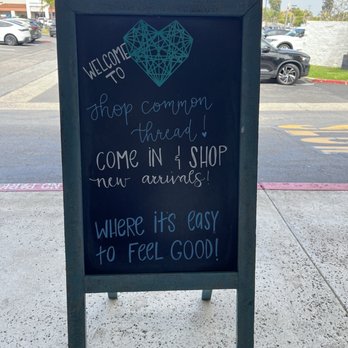 WELCOME
TO
shop common
thread!
COME IN & SHOP
new arrivals!
WHERE ITS EASY
TO FEEL GOOD!